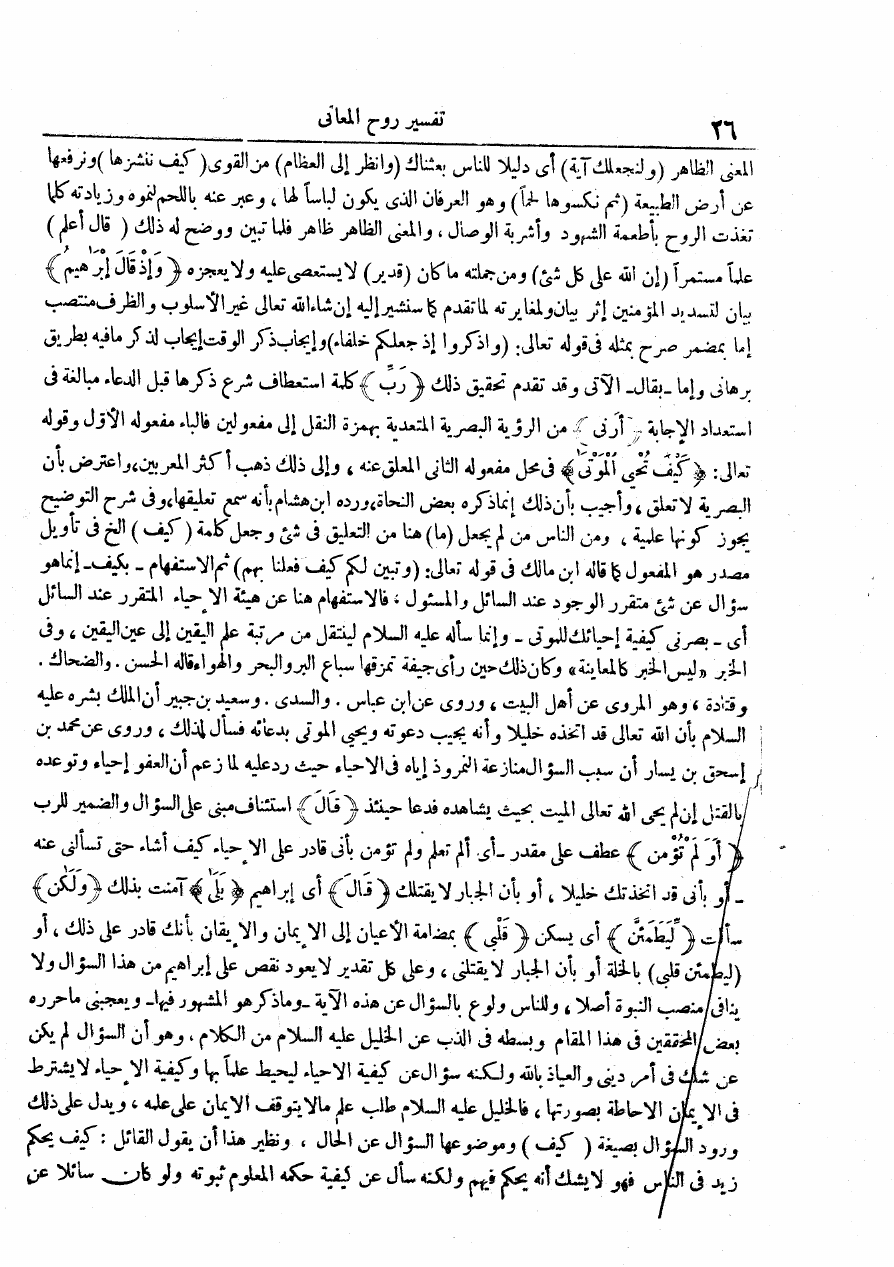 ٢٦
تفسير روح المعانى
المعنى الظاهر (ولنجعلك آية) أى دليلا للناس بعثناك (وانظر إلى العظام) من القوى (كيف ننشزها) ونرفعها
عن أرض الطبيعة (ثم نكسوها لحماً) وهو العرفان الذى يكون لباساً لها ، وعبر عنه باللحم لنموه وزيادته كلما
تغذت الروح بأطعمة الشهود وأشربة الوصال ، والمعنى الظاهر ظاهر فلما تبين ووضح له ذلك ( قال أعلم )
علماً مستمراً (إن الله على كل شئ) ومن جملته ما كان (قدير) لا يستعصى عليه ولا يعجزه ﴿ وَإِذْ قَالَ إِبْرَٰهِيمُ ﴾
بيان لتسديد المؤمنين إثر بيان ولمغايرته لما تقدم كما سنشير إليه إن شاء الله تعالى غير الأسلوب والظرف منتصب
إما بمضمر صرح بمثله فى قوله تعالى: (واذكروا إذ جعلكم خلفاء) وإيجاب ذكر الوقت إيجاب لذكر ما فيه بطريق
برهانى وإما ـ بقال ـ الآتى وقد تقدم تحقيق ذلك ﴿ رَبِّ ﴾ كلمة استعطاف شرع ذكرها قبل الدعاء مبالغة فى
استعداد الإجابة ﴿ أَرِنى ﴾ من الرؤية البصرية المتعدية بهمزة النقل إلى مفعولين فالياء مفعوله الأول وقوله
تعالى: ﴿ كَيْفَ تُحْىِ ٱلْمَوْتَىٰ ﴾ فى محل مفعوله الثانى المعلق عنه ، وإلى ذلك ذهب أكثر المعربين، واعترض بأن
البصرية لا تعلق ، وأجيب بأن ذلك إنما ذكره بعض النحاة، ورده ابن هشام بأنه سمع تعليقها، وفى شرح التوضيح
يجوز كونها علمية ، ومن الناس من لم يجعل (ما) هنا من التعليق فى شئ وجعل كلمة (كيف) الخ فى تأويل
مصدر هو المفعول كما قاله ابن مالك فى قوله تعالى: (وتبين لكم كيف فعلنا بهم) ثم الاستفهام ـ بكيف ـ إنما هو
سؤال عن شئ متقرر الوجود عند السائل والمسئول ، فالاستفهام هنا عن هيئة الإحياء المتقرر عند السائل
أى ـ بصرنى كيفية إحيائك للموتى ـ وإنما سأله عليه السلام لينتقل من مرتبة علم اليقين إلى عين اليقين ، وفى
الخبر «ليس الخبر كالمعاينة» وكان ذلك حين رأى جيفة تمزقها سباع البر والبحر والهواء قاله الحسن . والضحاك .
وقتادة ، وهو المروى عن أهل البيت ، وروى عن ابن عباس . والسدى . وسعيد بن جبير أن الملك بشره عليه
السلام بأن الله تعالى قد اتخذه خليلا وأنه يجيب دعوته ويحيي الموتى بدعائه فسأل لذلك ، وروى عن محمد بن
إسحق بن يسار أن سبب السؤال منازعة النمروذ إياه فى الاحياء حيث رد عليه لما زعم أن العفو إحياء وتوعده
بالقتل إن لم يحى الله تعالى الميت بحيث يشاهده فدعا حينئذ ﴿ قَالَ ﴾ استئناف مبنى على السؤال والضمير للرب
﴿ أَوَ لَمْ تُؤْمِن ﴾ عطف على مقدر ـ أى ألم تعلم ولم تؤمن بأنى قادر على الإحياء كيف أشاء حتى تسألنى عنه
ـ أو بأنى قد اتخذتك خليلا ، أو بأن الجبار لا يقتلك ﴿ قَالَ ﴾ أى إبراهيم ﴿ بَلَىٰ ﴾ آمنت بذلك ﴿ وَلَٰكِن ﴾
سألت ﴿ لِّيَطْمَئِنَّ ﴾ أى يسكن ﴿ قَلْبِى ﴾ بمضامة الأعيان إلى الإيمان والإيقان بأنك قادر على ذلك ، أو
(ليطمئن قلبى) بالخلة أو بأن الجبار لا يقتلنى ، وعلى كل تقدير لا يعود نقص على إبراهيم من هذا السؤال ولا
ينافى منصب النبوة أصلا ، وللناس ولوع بالسؤال عن هذه الآية ـ وما ذكر هو المشهور فيها ـ ويعجبنى ما حرره
بعض المحققين فى هذا المقام وبسطه فى الذب عن الخليل عليه السلام من الكلام ، وهو أن السؤال لم يكن
عن شك فى أمر دينى والعياذ بالله ولكنه سؤال عن كيفية الاحياء ليحيط علماً بها وكيفية الإحياء لا يشترط
فى الإيمان الاحاطة بصورتها ، فالخليل عليه السلام طلب علم ما لا يتوقف الإيمان على علمه ، ويدل على ذلك
ورود السؤال بصيغة ( كيف ) وموضوعها السؤال عن الحال ، ونظير هذا أن يقول القائل : كيف يحكم
زيد فى الناس فهو لا يشك أنه يحكم فيهم ولكنه سأل عن كيفية حكمه المعلوم ثبوته ولو كان سائلا عن